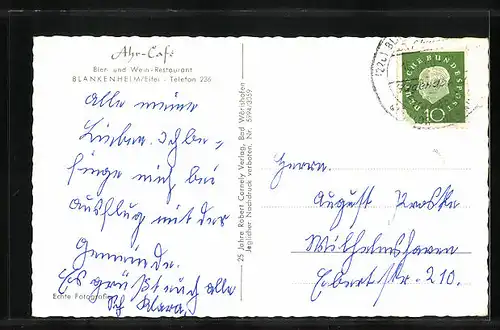 Ahr-Café
Bier- und Wein-Restaurant
BLANKENHEIM/Eifel - Telefon 238
Alle meine
Lieben. Ich be-
finge mich bei
Ausflug mit der
Gemeinde.
Es grüßt euch alle
Klara
Echte Fotografie
25 Jahre Robert Cornely Verlag, Bad Wörishofen
Jeglicher Nachdruck verboten. Nr. 5994/2359
DEUTSCHE BUNDESPOST
10
Herrn.
August
Wilhelmshaven
Ebertstr. 210.